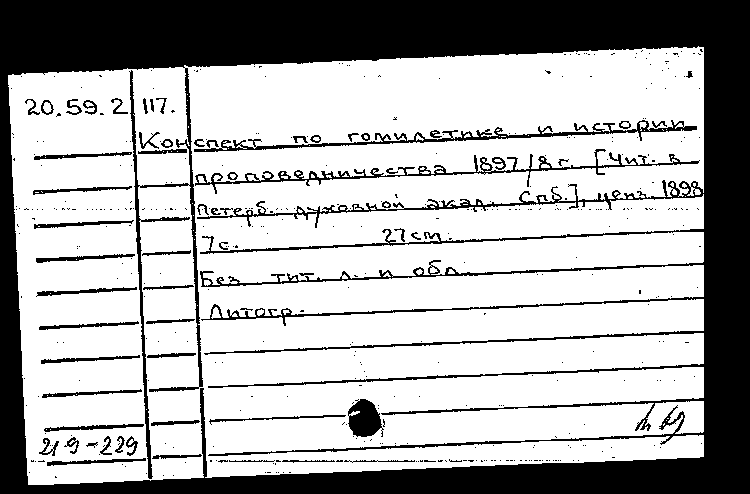 20.59.2 117.
Конспект по гомилетике и истории
проповедничества 1897/8 г. [Чит. в
Петерб. духовной акад. Спб.], ценз. 1898
7с. 27см.
Без тит. л. и обл.
Литогр.
219-229